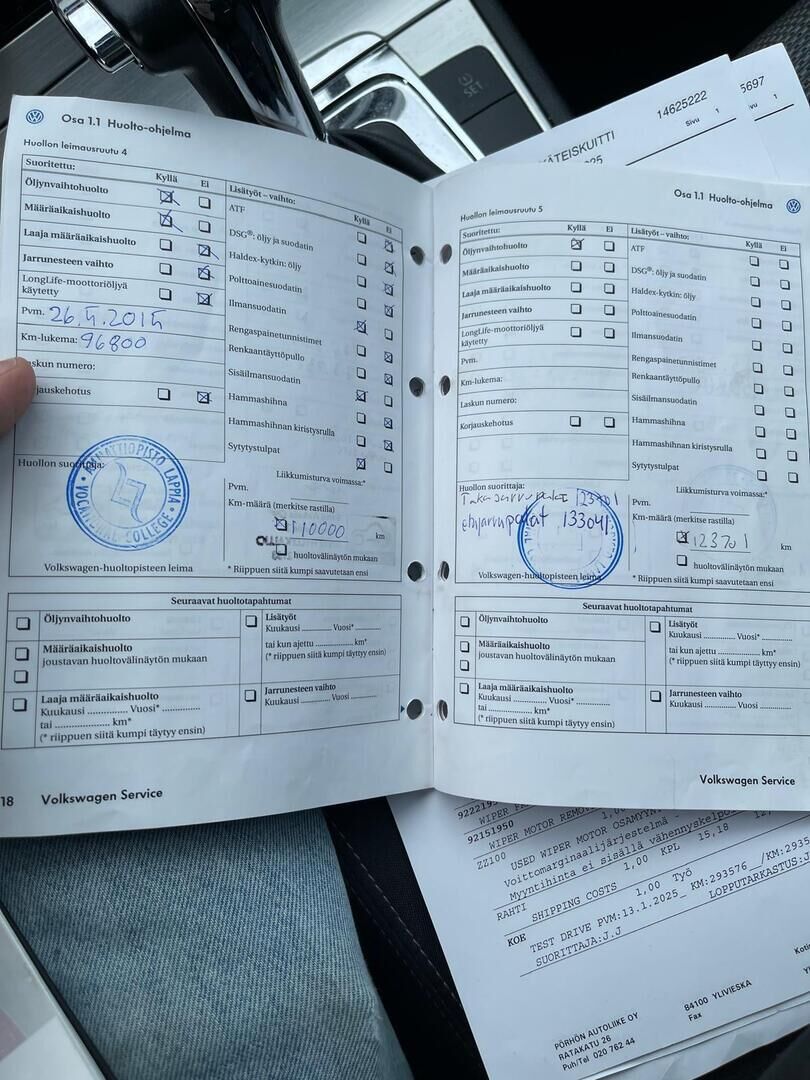 SET
14625222
Sivu 1
KÄTEISKUITTI
5697
1
Osa 1.1 Huolto-ohjelma
Huollon leimausruutu 4
Suoritettu:
Kyllä Ei
Öljynvaihtohuolto
Määräaikaishuolto
Laaja määräaikaishuolto
Jarrunesteen vaihto
LongLife-moottoriöljyä
käytetty
Pvm.
Km-lukema: 96800
Laskun numero:
Korjauskehotus
Huollon suorittaja:
AMMATTIOPISTO LAPPIA
VOCATIONAL COLLEGE
Volkswagen-huoltopisteen leima
Lisätyöt – vaihto:
Kyllä Ei
ATF
DSG®: öljy ja suodatin
Haldex-kytkin: öljy
Polttoainesuodatin
Ilmansuodatin
Rengaspainetunnistimet
Renkaantäyttöpullo
Sisäilmansuodatin
Hammashihna
Hammashihnan kiristysrulla
Sytytystulpat
Liikkumisturva voimassa:*
Pvm.
Km-määrä (merkitse rastilla)
110000 km
huoltovälinäytön mukaan
* Riippuen siitä kumpi saavutetaan ensi
Seuraavat huoltotapahtumat
Öljynvaihtohuolto
Määräaikaishuolto
joustavan huoltovälinäytön mukaan
Laaja määräaikaishuolto
Kuukausi .............. Vuosi* ..............
tai ....................... km*
(* riippuen siitä kumpi täytyy ensin)
Lisätyöt
Kuukausi ........... Vuosi* ..........
tai kun ajettu ................. km*
(* riippuen siitä kumpi täyttyy ensin)
Jarrunesteen vaihto
Kuukausi ........... Vuosi ..........
18 Volkswagen Service
Osa 1.1 Huolto-ohjelma
Huollon leimausruutu 5
Suoritettu:
Kyllä Ei
Öljynvaihtohuolto
Määräaikaishuolto
Laaja määräaikaishuolto
Jarrunesteen vaihto
LongLife-moottoriöljyä
käytetty
Pvm.
Km-lukema:
Laskun numero:
Korjauskehotus
Huollon suorittaja:
Takajarrupalat 123701
etujarrupalat 133041
Volkswagen-huoltopisteen leima
Lisätyöt – vaihto:
Kyllä Ei
ATF
DSG®: öljy ja suodatin
Haldex-kytkin: öljy
Polttoainesuodatin
Ilmansuodatin
Rengaspainetunnistimet
Renkaantäyttöpullo
Sisäilmansuodatin
Hammashihna
Hammashihnan kiristysrulla
Sytytystulpat
Liikkumisturva voimassa:*
Pvm.
Km-määrä (merkitse rastilla)
123701 km
huoltovälinäytön mukaan
* Riippuen siitä kumpi saavutetaan ensin
Seuraavat huoltotapahtumat
Öljynvaihtohuolto
Määräaikaishuolto
joustavan huoltovälinäytön mukaan
Laaja määräaikaishuolto
Kuukausi .............. Vuosi* ..............
tai ....................... km*
(* riippuen siitä kumpi täytyy ensin)
Lisätyöt
Kuukausi ........... Vuosi* ..........
tai kun ajettu ................. km*
(* riippuen siitä kumpi täyttyy ensin)
Jarrunesteen vaihto
Kuukausi ........... Vuosi ..........
Volkswagen Service
WIPER
92151950 WIPER MOTOR
ZZ100 USED WIPER MOTOR
Voittomarginaalijärjestelmä -
Myyntihinta ei sisällä vähennyskelpo
RAHTI 1,00 KPL 15,18
SHIPPING COSTS
KOE 1,00 Työ
TEST DRIVE PVM:13.1.2025_ KM:293576 _/KM:293
SUORITTAJA:J.J LOPPUTARKASTUS:J
PÖRHÖN AUTOLIIKE OY
RATAKATU 26
84100 YLIVIESKA
Puh/Tel 020 762 44
Fax